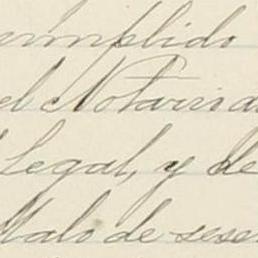 cumplido
el Notaria
Legal, y de
Malo de sese